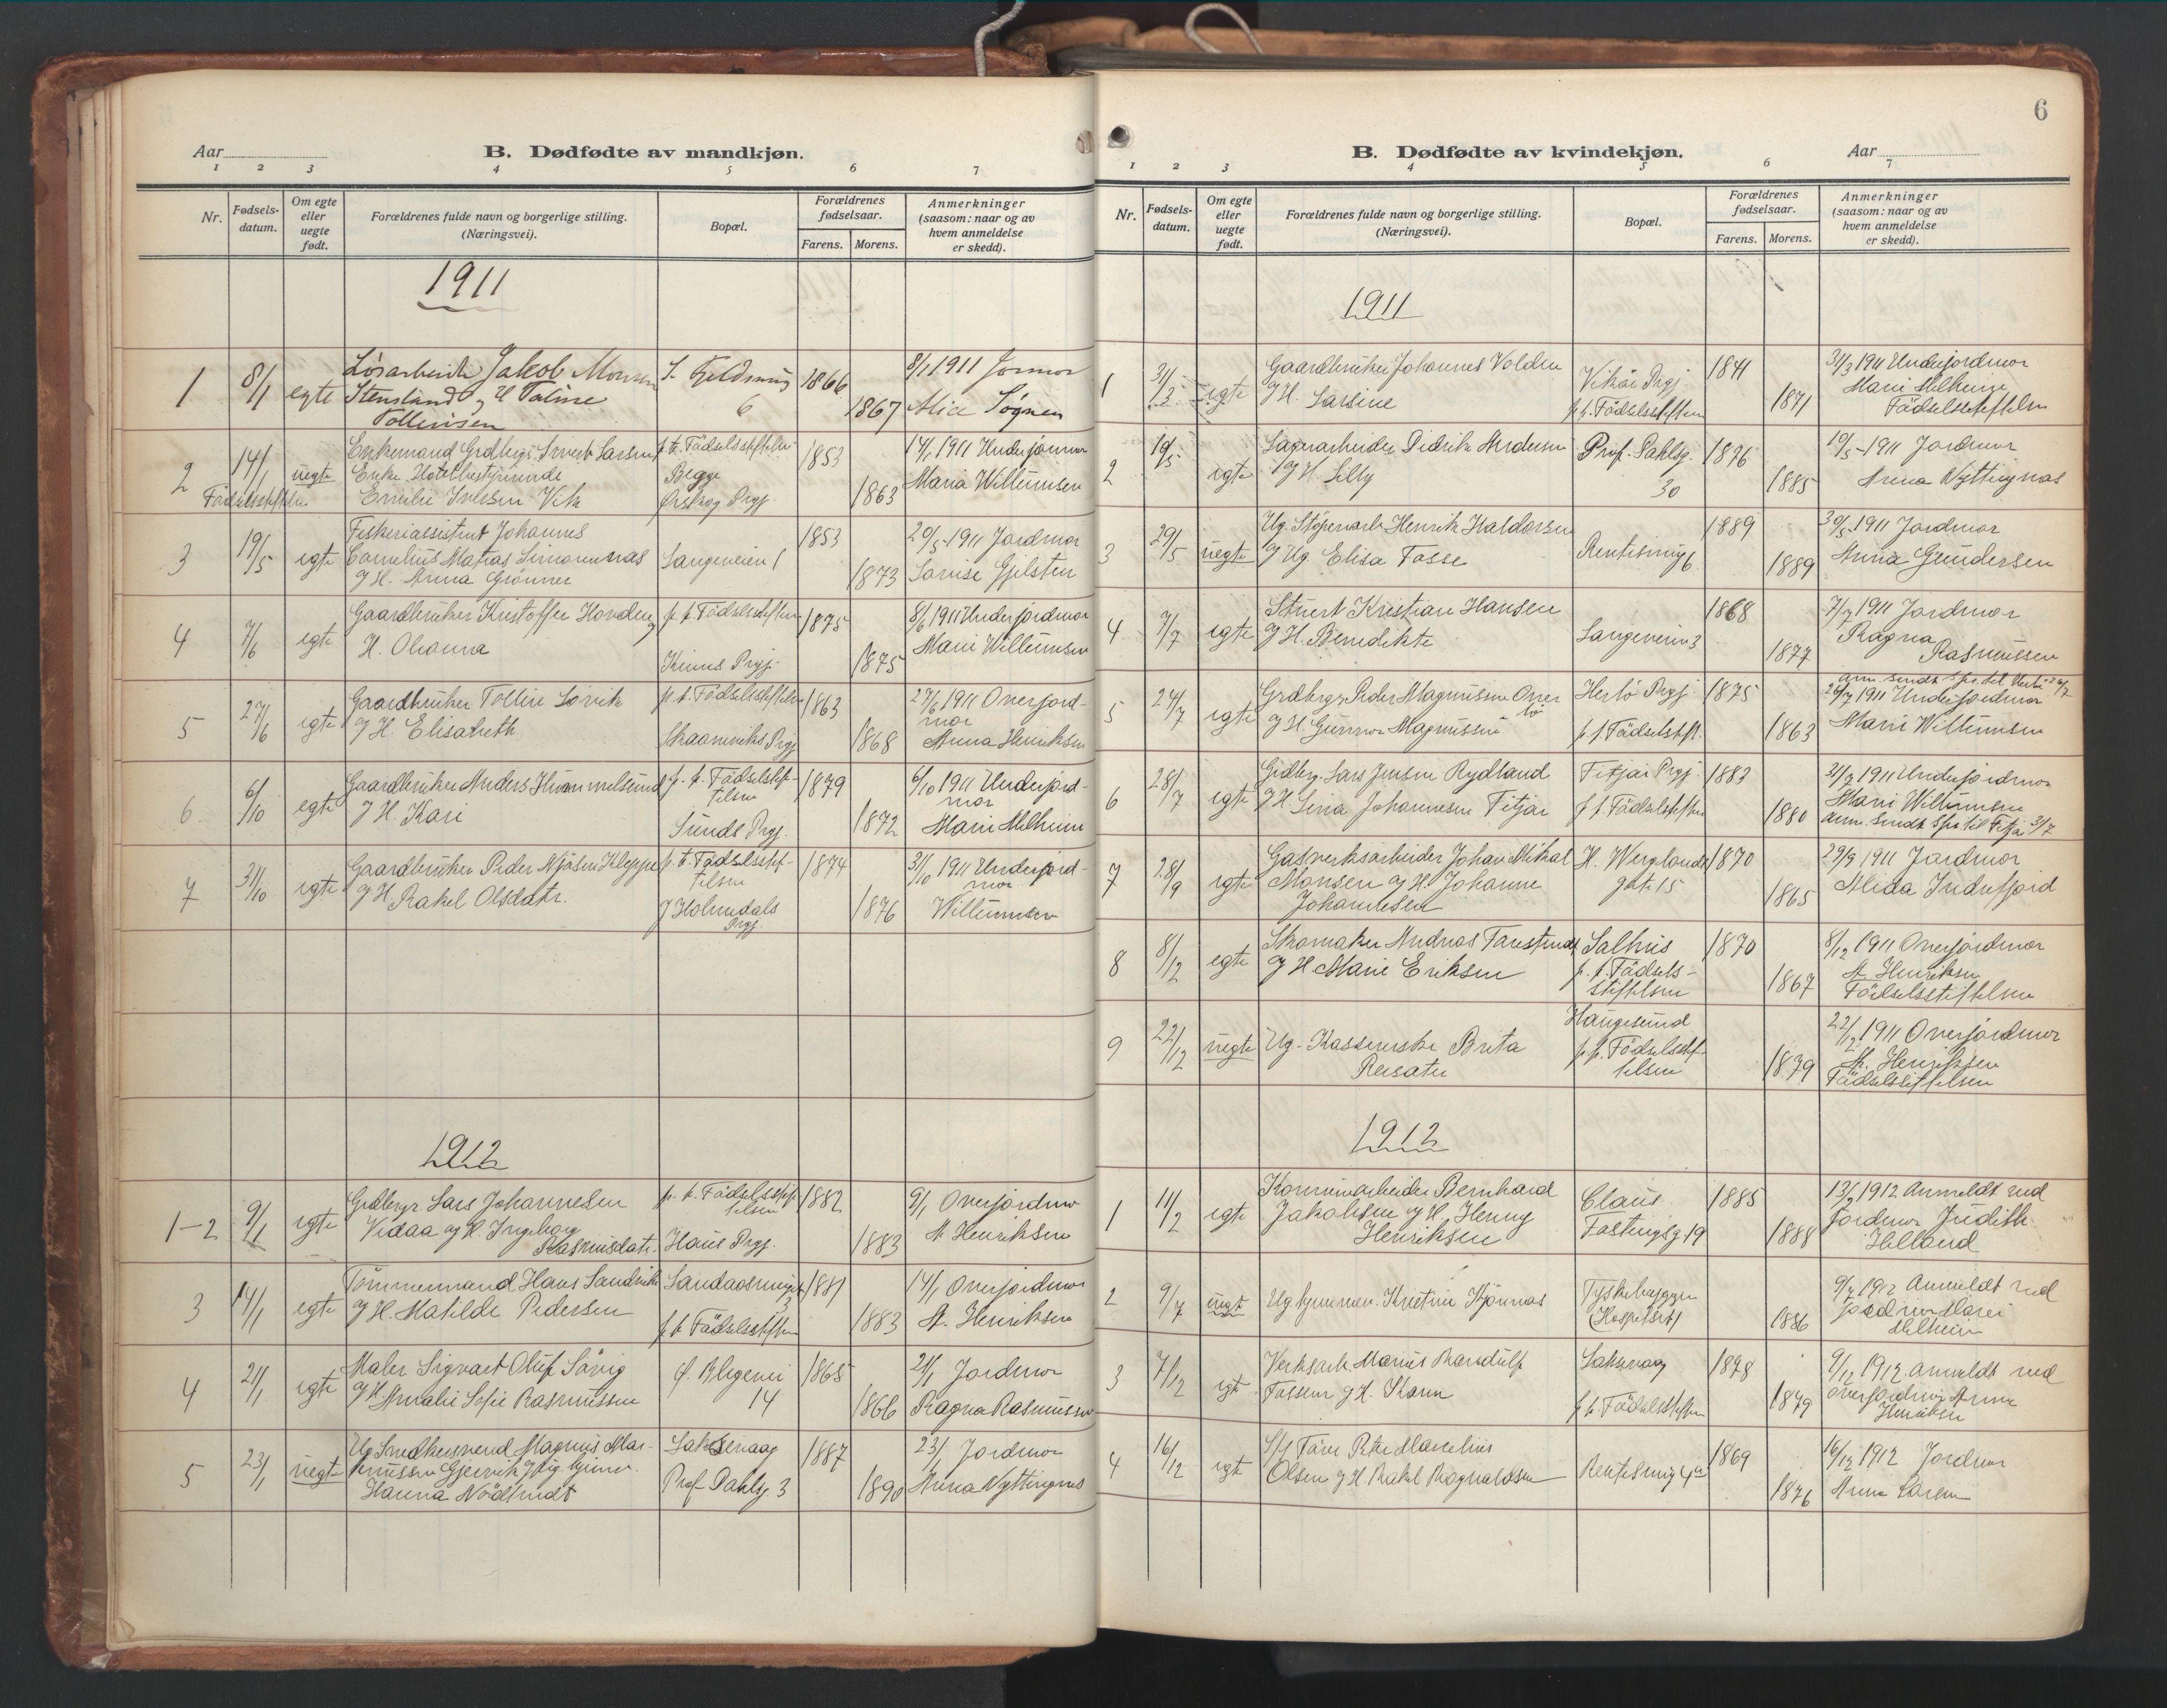 6
Aar
B. Dødfødte av mandkjøn.
1 2 3 4 5 6 7
Nr.
Fødsels-
datum.
Om egte
eller
uegte
født.
Forældrenes fulde navn og borgerlige stilling.
(Næringsvei).
Bopæl.
Forældrenes
fødselsaar.
Farens. Morens.
Anmerkninger
(saasom: naar og av
hvem anmeldelse
er skedd).
1911
1 8/1 egte Jakob Monsen 1866 8/1 1911 Jormor
Stensland og H Taline 6 1867 Alice Søgnen
Tollevsen
2 14/1 uegte Enkemand Grdbrgr. Sivert Larsen p. t. Fødselsstiftelsen 1853 14/1 1911 Underjormor
Enke Hotelbestyrerinde Begge 1863 Maria Willumsen
Fødselsstiftelsen Emilie Vik Ørskog Prgj.
3 19/5 egte Fiskeriassistent Johannes 1853 20/5-1911 Jordmor
Cornelius Matias Simonnæs Langeveien 1
og H. Anna Grønner 1873 Lovise Gjelsten
4 7/6 egte Gaardbruker Kristoffer Hovden og p. t. Fødselsstiftelsen 1875 8/6 1911 Underjordmor
H. Oleanna Kinns Prgj. 1875 Marie Willumsen
5 27/6 egte Gaardbruker Tollev p. t. Fødselsstiftelsen 1863 27/6 1911 Overjord-
og H. Elisabeth mor
Skaanviks Prgj 1868 Anna Henriksen
6 6/10 egte Gaardbruker Anders Hummelsund p. t. Fødselsstif- 1879 6/10 1911 Underjord-
og H. Kari telsen mor
Sunds Prgj. 1872 Marie Milheim
7 31/10 egte Gaardbruker Peder Njåsen Kleppe p. t. Fødselsstif- 1874 31/10 1911 Underjord-
og H Rakel Olsdatr. telsen mor
Holmedals 1876 Willumsen
Prgj.
1912
1-2 9/1 egte Grdbrgr. Lars Johannesen p. t. Fødselsstif- 1882 9/1 Overjordmor
Vidaa og H. Ingeborg telsen
Rasmusdatr. Haus Prgj. 1883 A. Henriksen
3 14/1 egte Tømmermand Hans Sandvik 1881 14/1 Overjordmor
og H. Matilde Pedersen 3
p t Fødselsstiftelsen 1883 A. Henriksen
4 21/1 egte Maler Sigvart Oluf Søvig 1865 21/1 Jordmor
og H Amalie Sofie Rasmussen 14 1866 Ragna Rasmussen
5 23/1 uegte Ug Magnus Mag- Laksevaag 1887 23/1 Jordmor
nussen Gjervik og Ug
Hanna Nødtvedt Prof. Dahlsg. 3 1890 Anna Nyttingnes
B. Dødfødte av kvindekjøn.
Aar
1 2 3 4 5 6 7
Nr.
Fødsels-
datum.
Om egte
eller
uegte
født.
Forældrenes fulde navn og borgerlige stilling.
(Næringsvei).
Bopæl.
Forældrenes
fødselsaar.
Farens. Morens.
Anmerkninger
(saasom: naar og av
hvem anmeldelse
er skedd).
1911
1 31/3 egte Gaardbruker Johannes Volden Vikør Prgj 1841 31/3 1911 Underjordmor
og H. Larsine p t. Fødselsstiftelsen 1871 Marie Milheim
Fødselsstiftelsen
2 19/5 egte Lagerarbeider Didrik Andersen Prof. Dahlsg. 1876 19/5-1911 Jordmor
og H. Lilly 30 1885 Anna Nyttingnes
3 29/5 uegte Ug. Henrik Haldorsen 1889 30/5 1911 Jordmor
og Ug Elisa Fosse Rentesmug 6 1889 Anna Gundersen
4 7/7 egte Stuert Kristian Hansen Langeveien 3 1868 7/7 1911 Jordmor
og H. Benedikte 1877 Ragna
Rasmussen
5 24/7 egte Grdbrgr. Peder Magnussen Herlø Prgj 1875 26/7 1911 Underjordmor
og H. Gunvor Magnussen p t Fødselsstift. 1863 Marie Willumsen
6 28/7 egte Grdbrgr. Lars Jensen Rydland Fitjar Prgj. 1883 31/7 1911 Underjordmor
og H. Lina Johannesen Fitjar p t. Fødselsstiftelsen 1880 Marie Willumsen
anm. sendt Spr. til Fitjar 31/7
7 28/9 egte Gasverksarbeider Johan Mikal H. Wergelands 1870 29/9 1911 Jordmor
Monsen og H. Johanne gate 15 1865 Alida Indrefjord
Johannesen
8 8/12 egte Skomaker Andreas Salhus 1870 8/12 1911 Overjordmor
og H. Marie Eriksen p. t. Fødsels- 1867 A Henriksen
stiftelsen Fødselsstiftelsen
9 22/12 uegte Ug. Kassererske Brita Haugesund 22/12 1911 Overjordmor
p. t. Fødselsstif- A. Henriksen
telsen 1879 Fødselsstiftelsen
1912
1 11/2 egte Bernhard Claus 1885 13/2 1912 Anmeldt ved
Jakobsen og H. Henny Fastingsg 19 jordmor Judith
Henriksen 1888 Helland
2 9/7 uegt Ug Kristine Tyskebryggen 9/7 1912 Anmeldt ved
(Hospitset) 1886 jordmor Marie
Milheim
3 7/12 egte Verksarb. Marius Laksevaag 1878 9/12 1912 anmeldt ved
Fossen og H. Karen p t. Fødselsstiftelsen 1879 overjordmor Anna
Henriksen
4 16/12 egte Peter Marselius 1869 16/12 1912 Jordmor
Olsen og H. Rakel Ragnvaldsen Rentesmug 4 a 1876 Anna Larsen